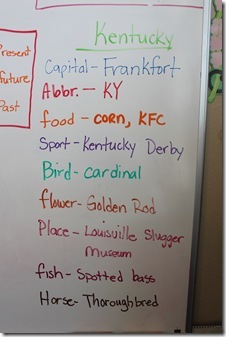 Present
future
Past
Kentucky
Capital - Frankfort
Abbr. - KY
food - corn, KFC
Sport - Kentucky Derby
Bird - cardinal
flower - Golden Rod
Place - Louisville Slugger
Museum
fish - Spotted bass
Horse - Thoroughbred